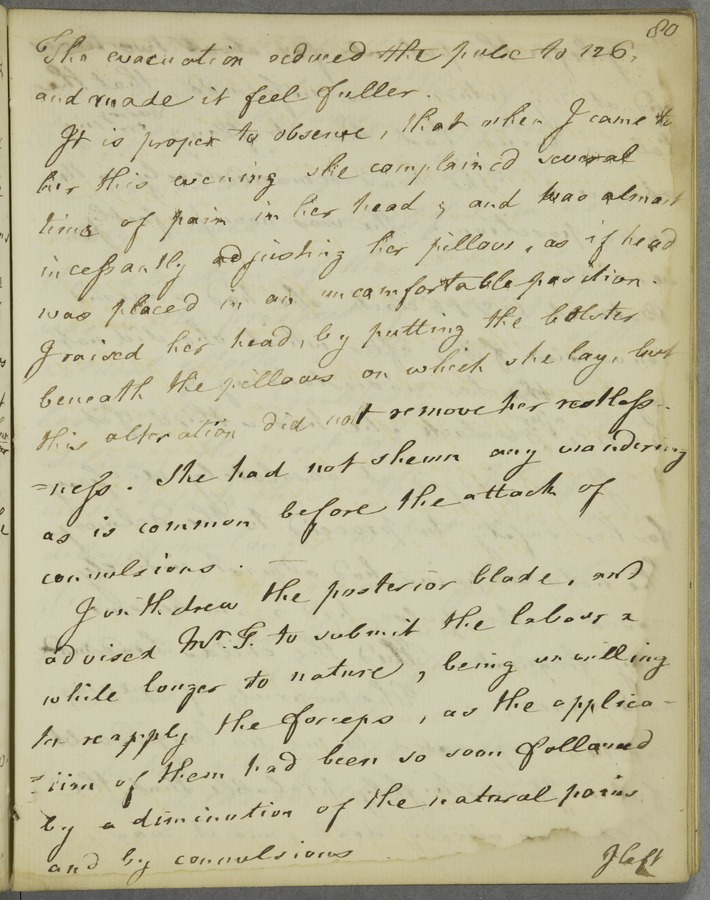 80
The evacuation reduced the pulse to 126,
and made it feel fuller.
It is proper to observe, that when I came to
her this evening she complained several
times of pain in her head; and was almost
incessantly adjusting her pillow, as if head
was placed in an uncomfortable position.
I raised her head, by putting the bolster
beneath the pillows on which she lay, but
this alteration did not remove her restless-
=ness. She had not shewn any wandering
as is common before the attack of
convulsions. —
I withdrew the posterior blade, and
advised Mr. F. to submit the labour a
while longer to nature, being unwilling
to reapply the forceps, as the applica-
=tion of them had been so soon followed
by a diminution of the natural pains
and by convulsions
I left